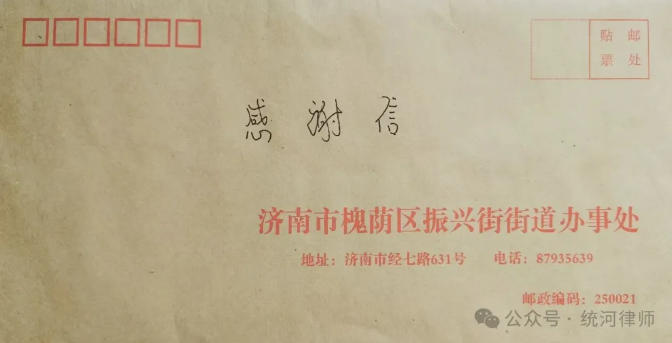 贴邮
票处
感谢信
济南市槐荫区振兴街街道办事处
地址：济南市经七路631号 电话：87935639
邮政编码：250021
公众号·统河律师